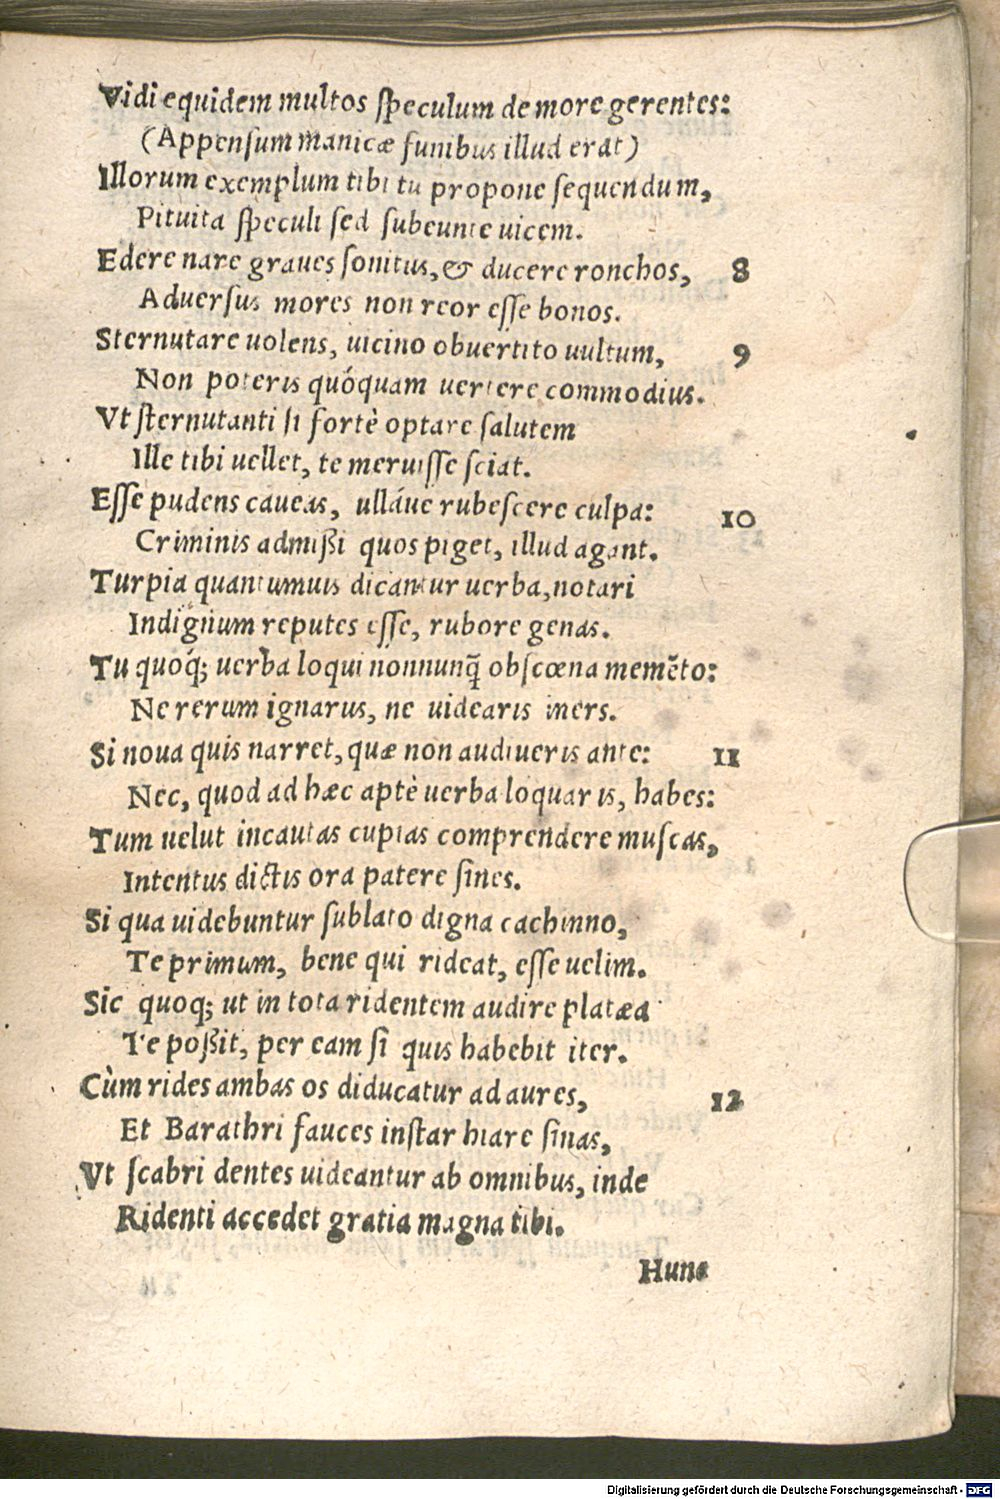 Vidi equidem multos speculum de more gerentes:
(Appensum manicæ funibus illud erat)
Illorum exemplum tibi tu propone sequendum,
Pituita speculi sed subeunte uicem.
Edere nare graues sonitus, & ducere ronchos, 8
Aduersus mores non reor esse bonos.
Sternutare uolens, uicino obuertito uultum, 9
Non poteris quóquam uertere commodius.
Vt sternutanti si fortè optare salutem
Ille tibi uellet, te meruisse sciat.
Esse pudens caueas, ulláue rubescere culpa: 10
Criminis admißi quos piget, illud agant.
Turpia quantumuis dicantur uerba, notari
Indignum reputes esse, rubore genas.
Tu quoq́; uerba loqui nonnunq̃ obscœna memẽto:
Ne rerum ignarus, ne uidearis iners.
Si noua quis narret, quæ non audiueris ante: 11
Nec, quod ad hæc aptè uerba loquaris, habes:
Tum uelut incautas cupias comprendere muscas,
Intentus dictis ora patere sines.
Si qua uidebuntur sublato digna cachinno,
Te primum, bene qui rideat, esse uelim.
Sic quoq; ut in tota ridentem audire platæa
Te poßit, per eam si quis habebit iter.
Cùm rides ambas os diducatur ad aures, 12
Et Barathri fauces instar hiare sinas,
Vt scabri dentes uideantur ab omnibus, inde
Ridenti accedet gratia magna tibi.
Hunc
Digitalisierung gefördert durch die Deutsche Forschungsgemeinschaft - DFG